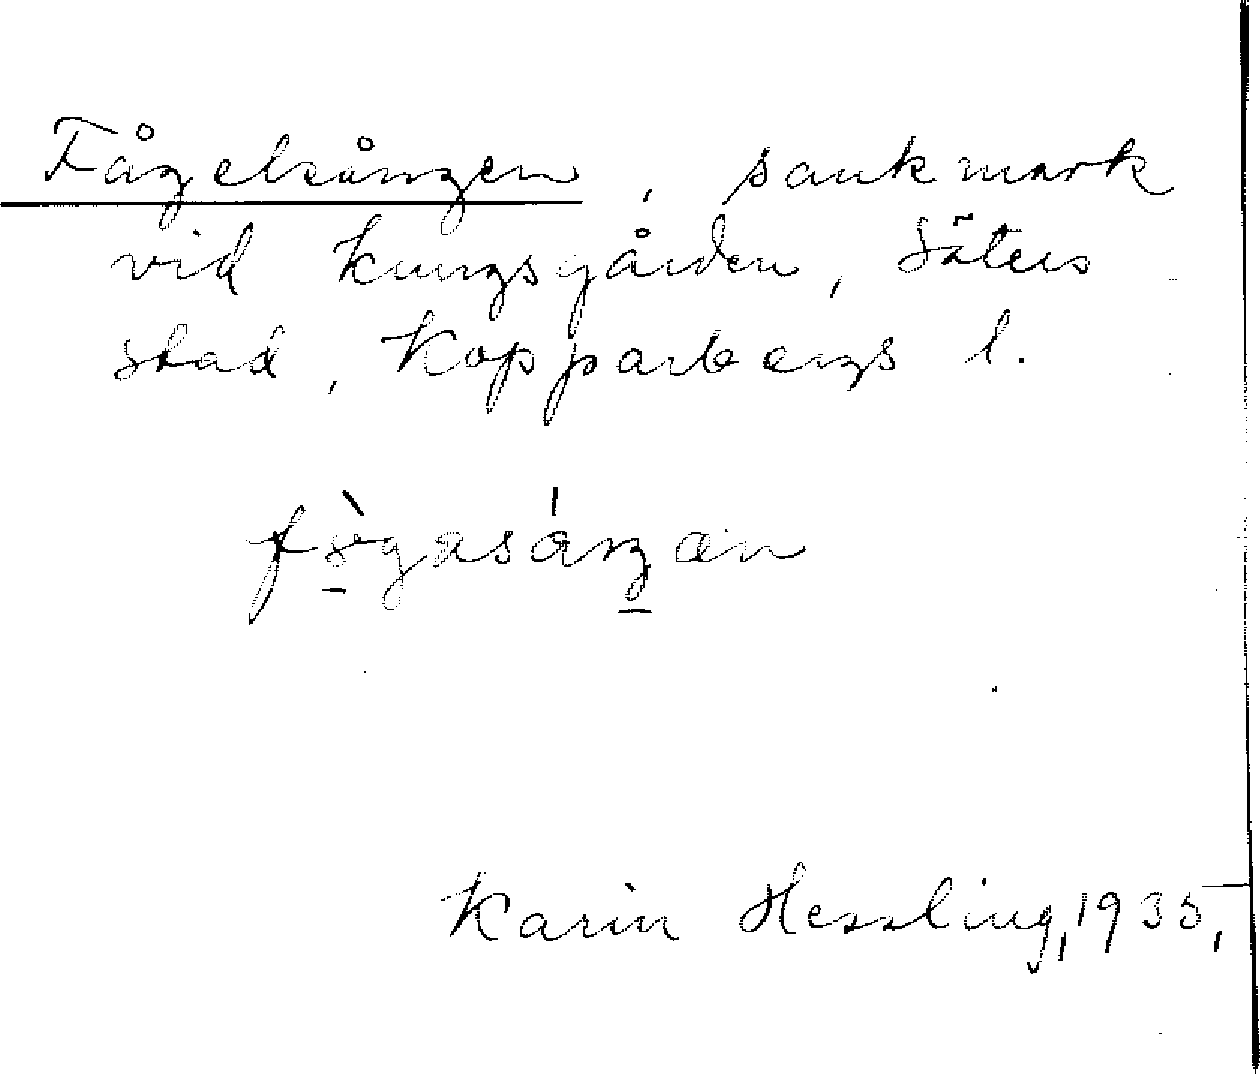 Fågelsången, sankmark
vid Kungsgården, Säters
stad, Kopparbergs l.
Karin Hessling, 1935,